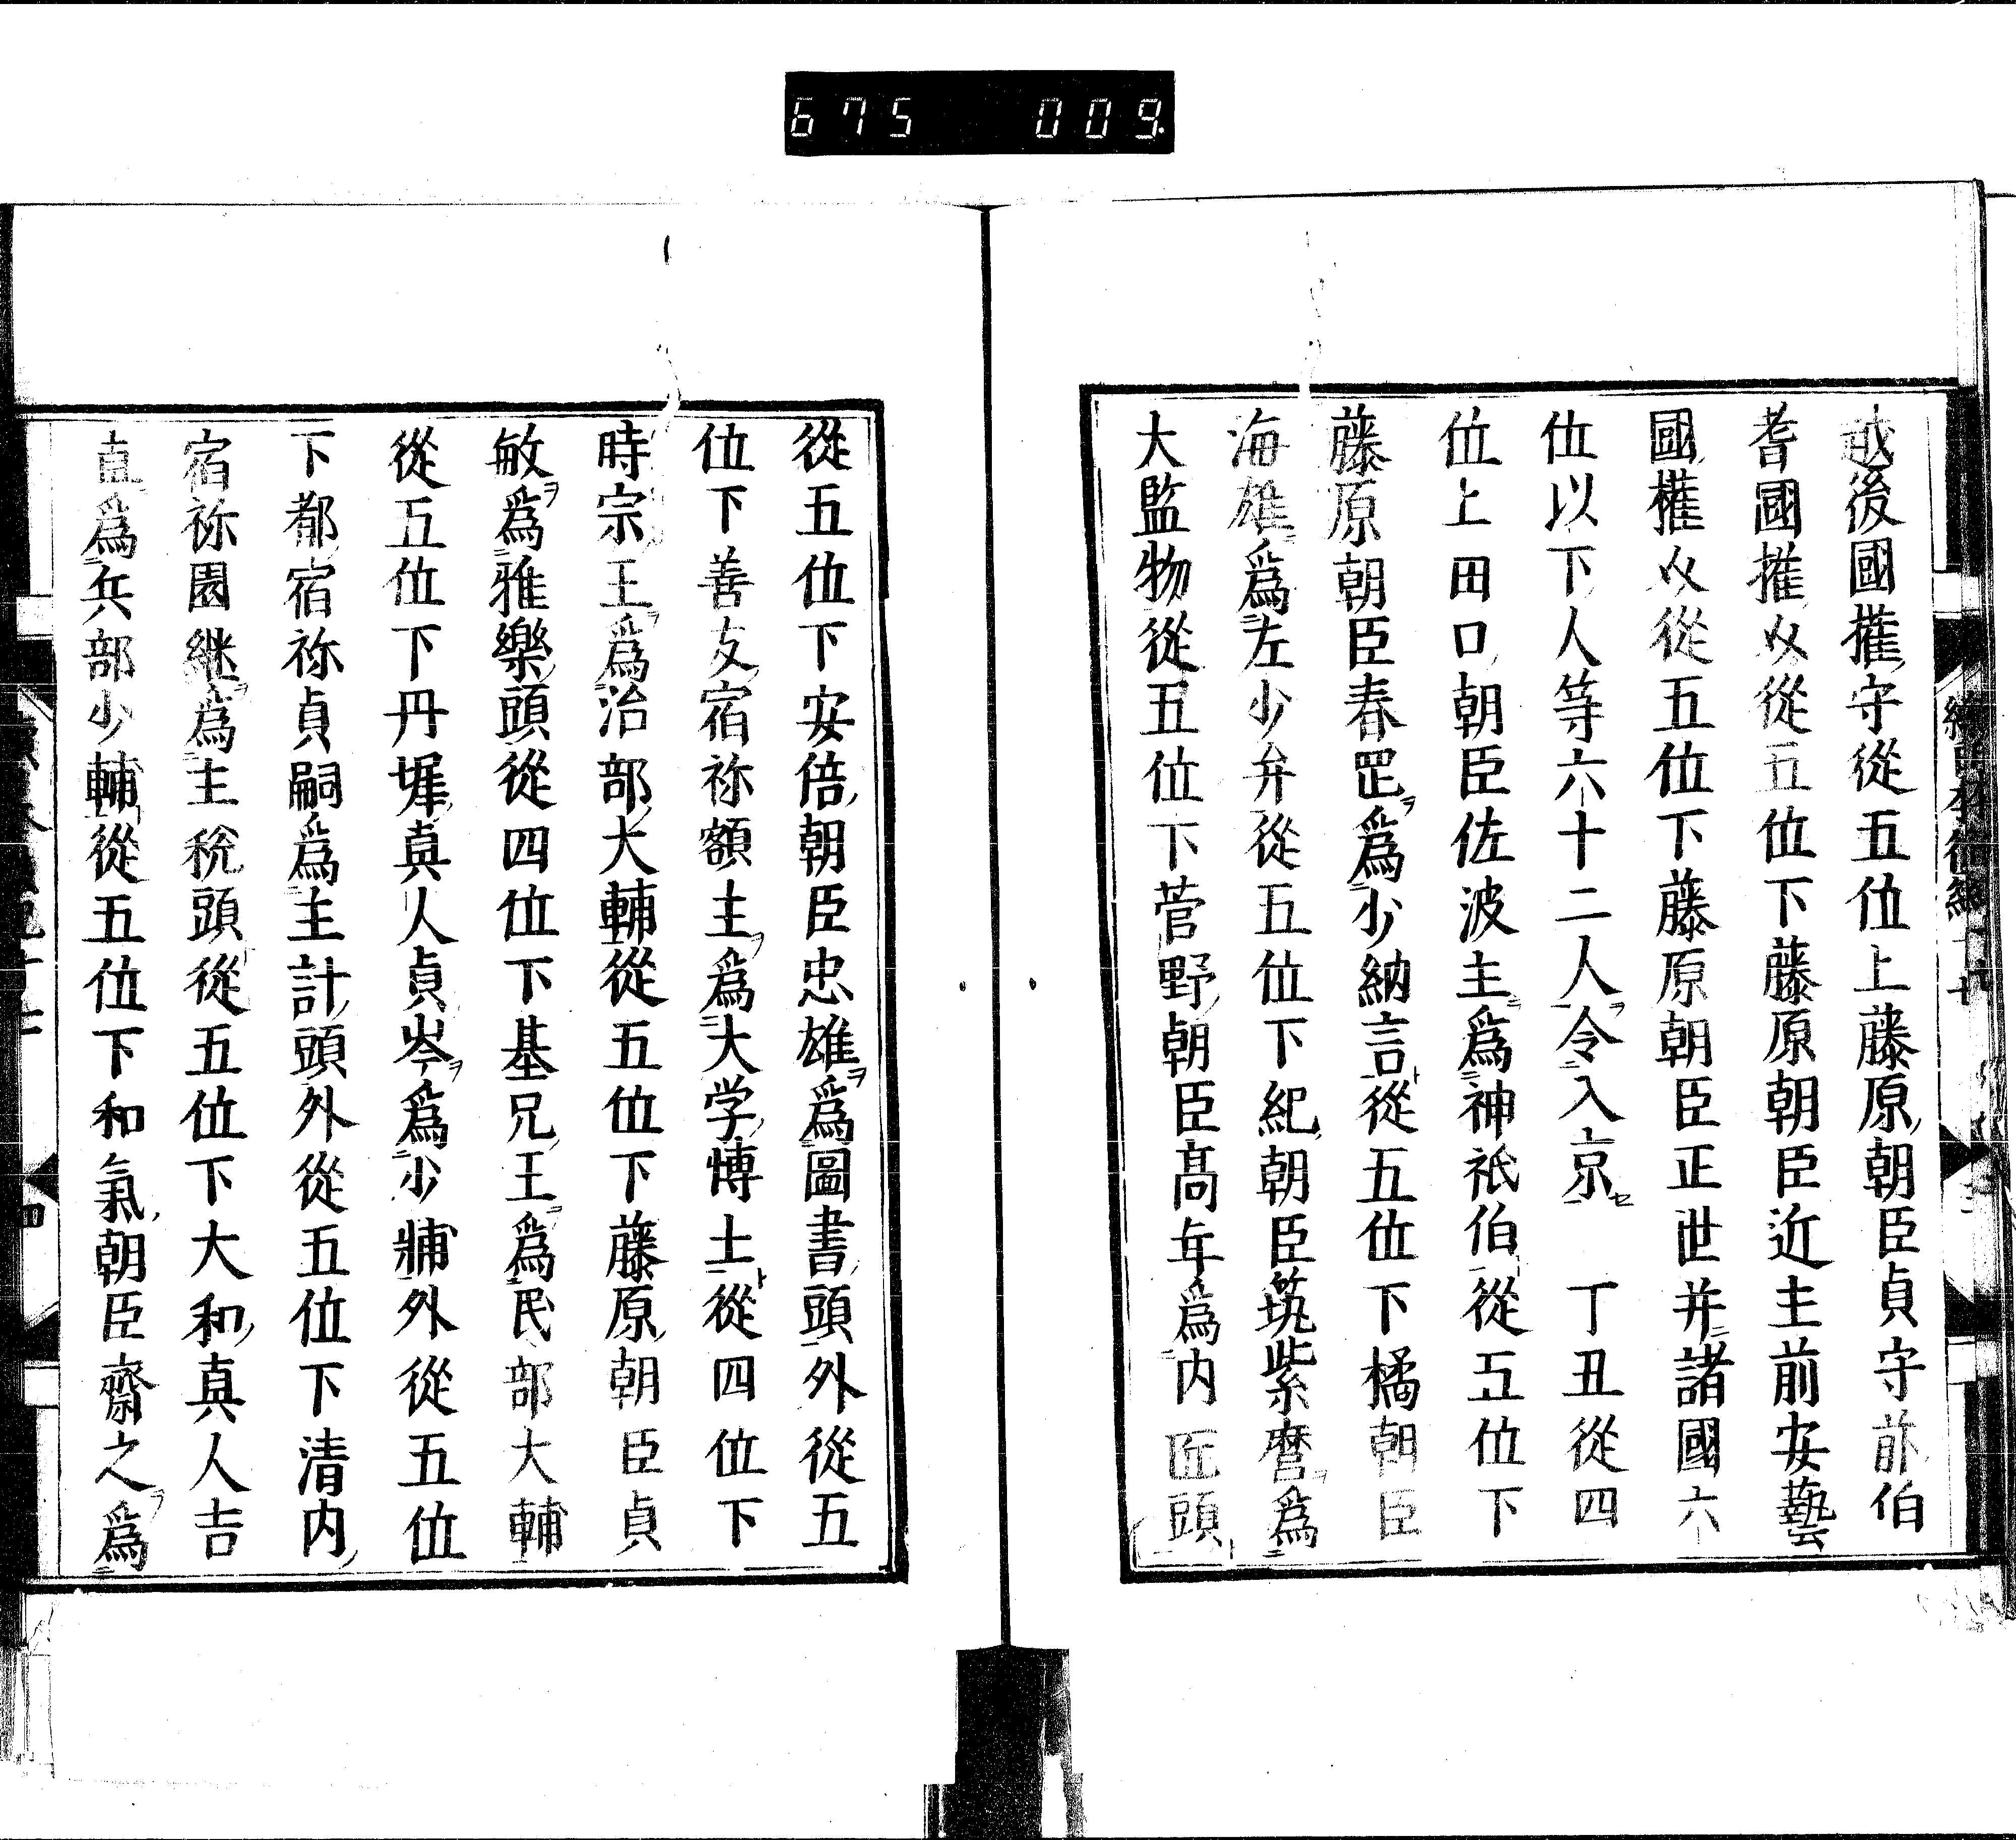 675 009
越後國權守從五位上藤原朝臣貞守前伯
耆國權介從五位下藤原朝臣近主前安藝
國權介從五位下藤原朝臣正世并諸國六
位以下人等六十二人令入京 丁丑從四
位上田口朝臣佐波主爲神祇伯從五位下
藤原朝臣春岡爲少納言從五位下橘朝臣
海雄爲左少弁從五位下紀朝臣筑紫麿爲
大監物從五位下菅野朝臣高年爲内匠頭
從五位下安倍朝臣忠雄爲圖書頭外從五
位下善友宿祢額主爲大学博士從四位下
時宗王爲治部大輔從五位下藤原朝臣貞
敏爲雅樂頭從四位下基兄王爲民部大輔
從五位下丹墀真人貞岑爲少輔外從五位
下都宿祢貞嗣爲主計頭外從五位下清内
宿祢園継爲主稅頭從五位下大和真人吉
直爲兵部少輔從五位下和氣朝臣齋之爲
四